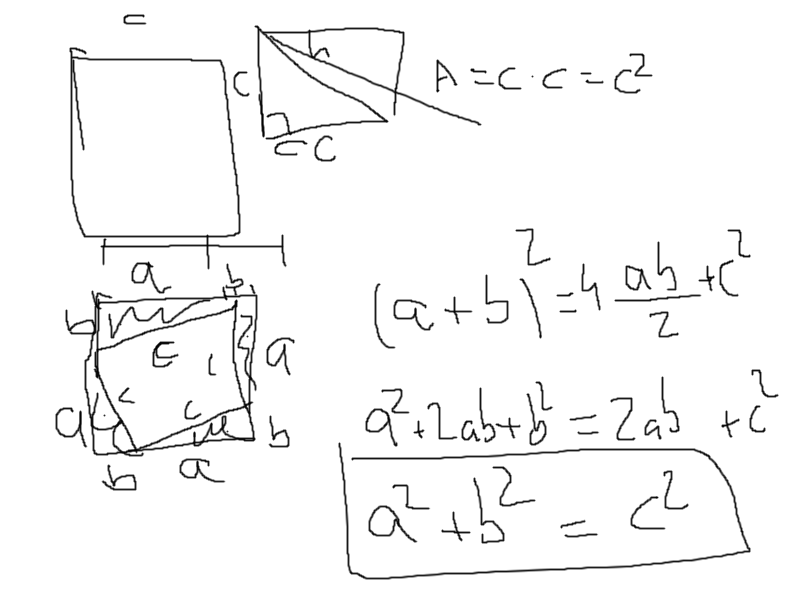 c
=c
A=c·c=c²
a b
b
c
c
a
c
c
a
b
b a
(a+b)²=4 ab/2 +c²
a²+2ab+b²=2ab +c²
a²+b² = c²